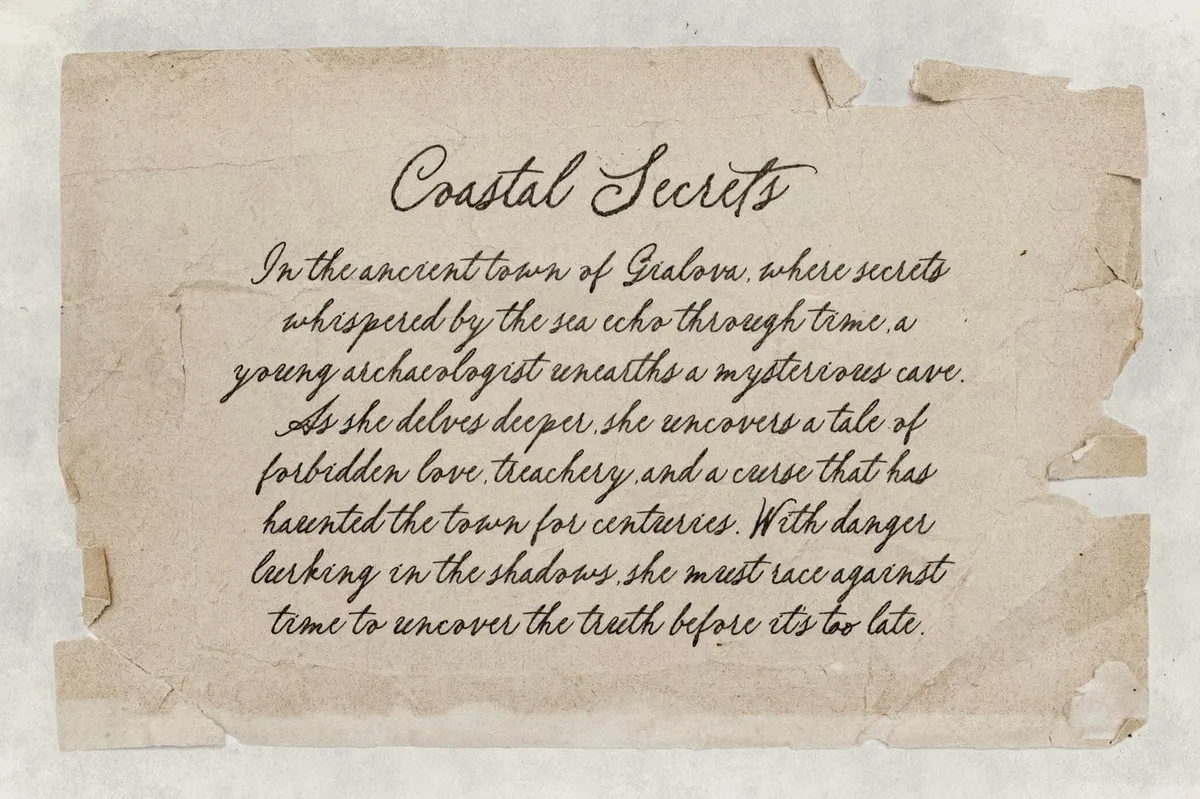 Coastal Secrets
In the ancient town of Gialova, where secrets
whispered by the sea echo through time, a
young archaeologist unearths a mysterious cave.
As she delves deeper, she uncovers a tale of
forbidden love, treachery, and a curse that has
haunted the town for centuries. With danger
lurking in the shadows, she must race against
time to uncover the truth before it's too late.